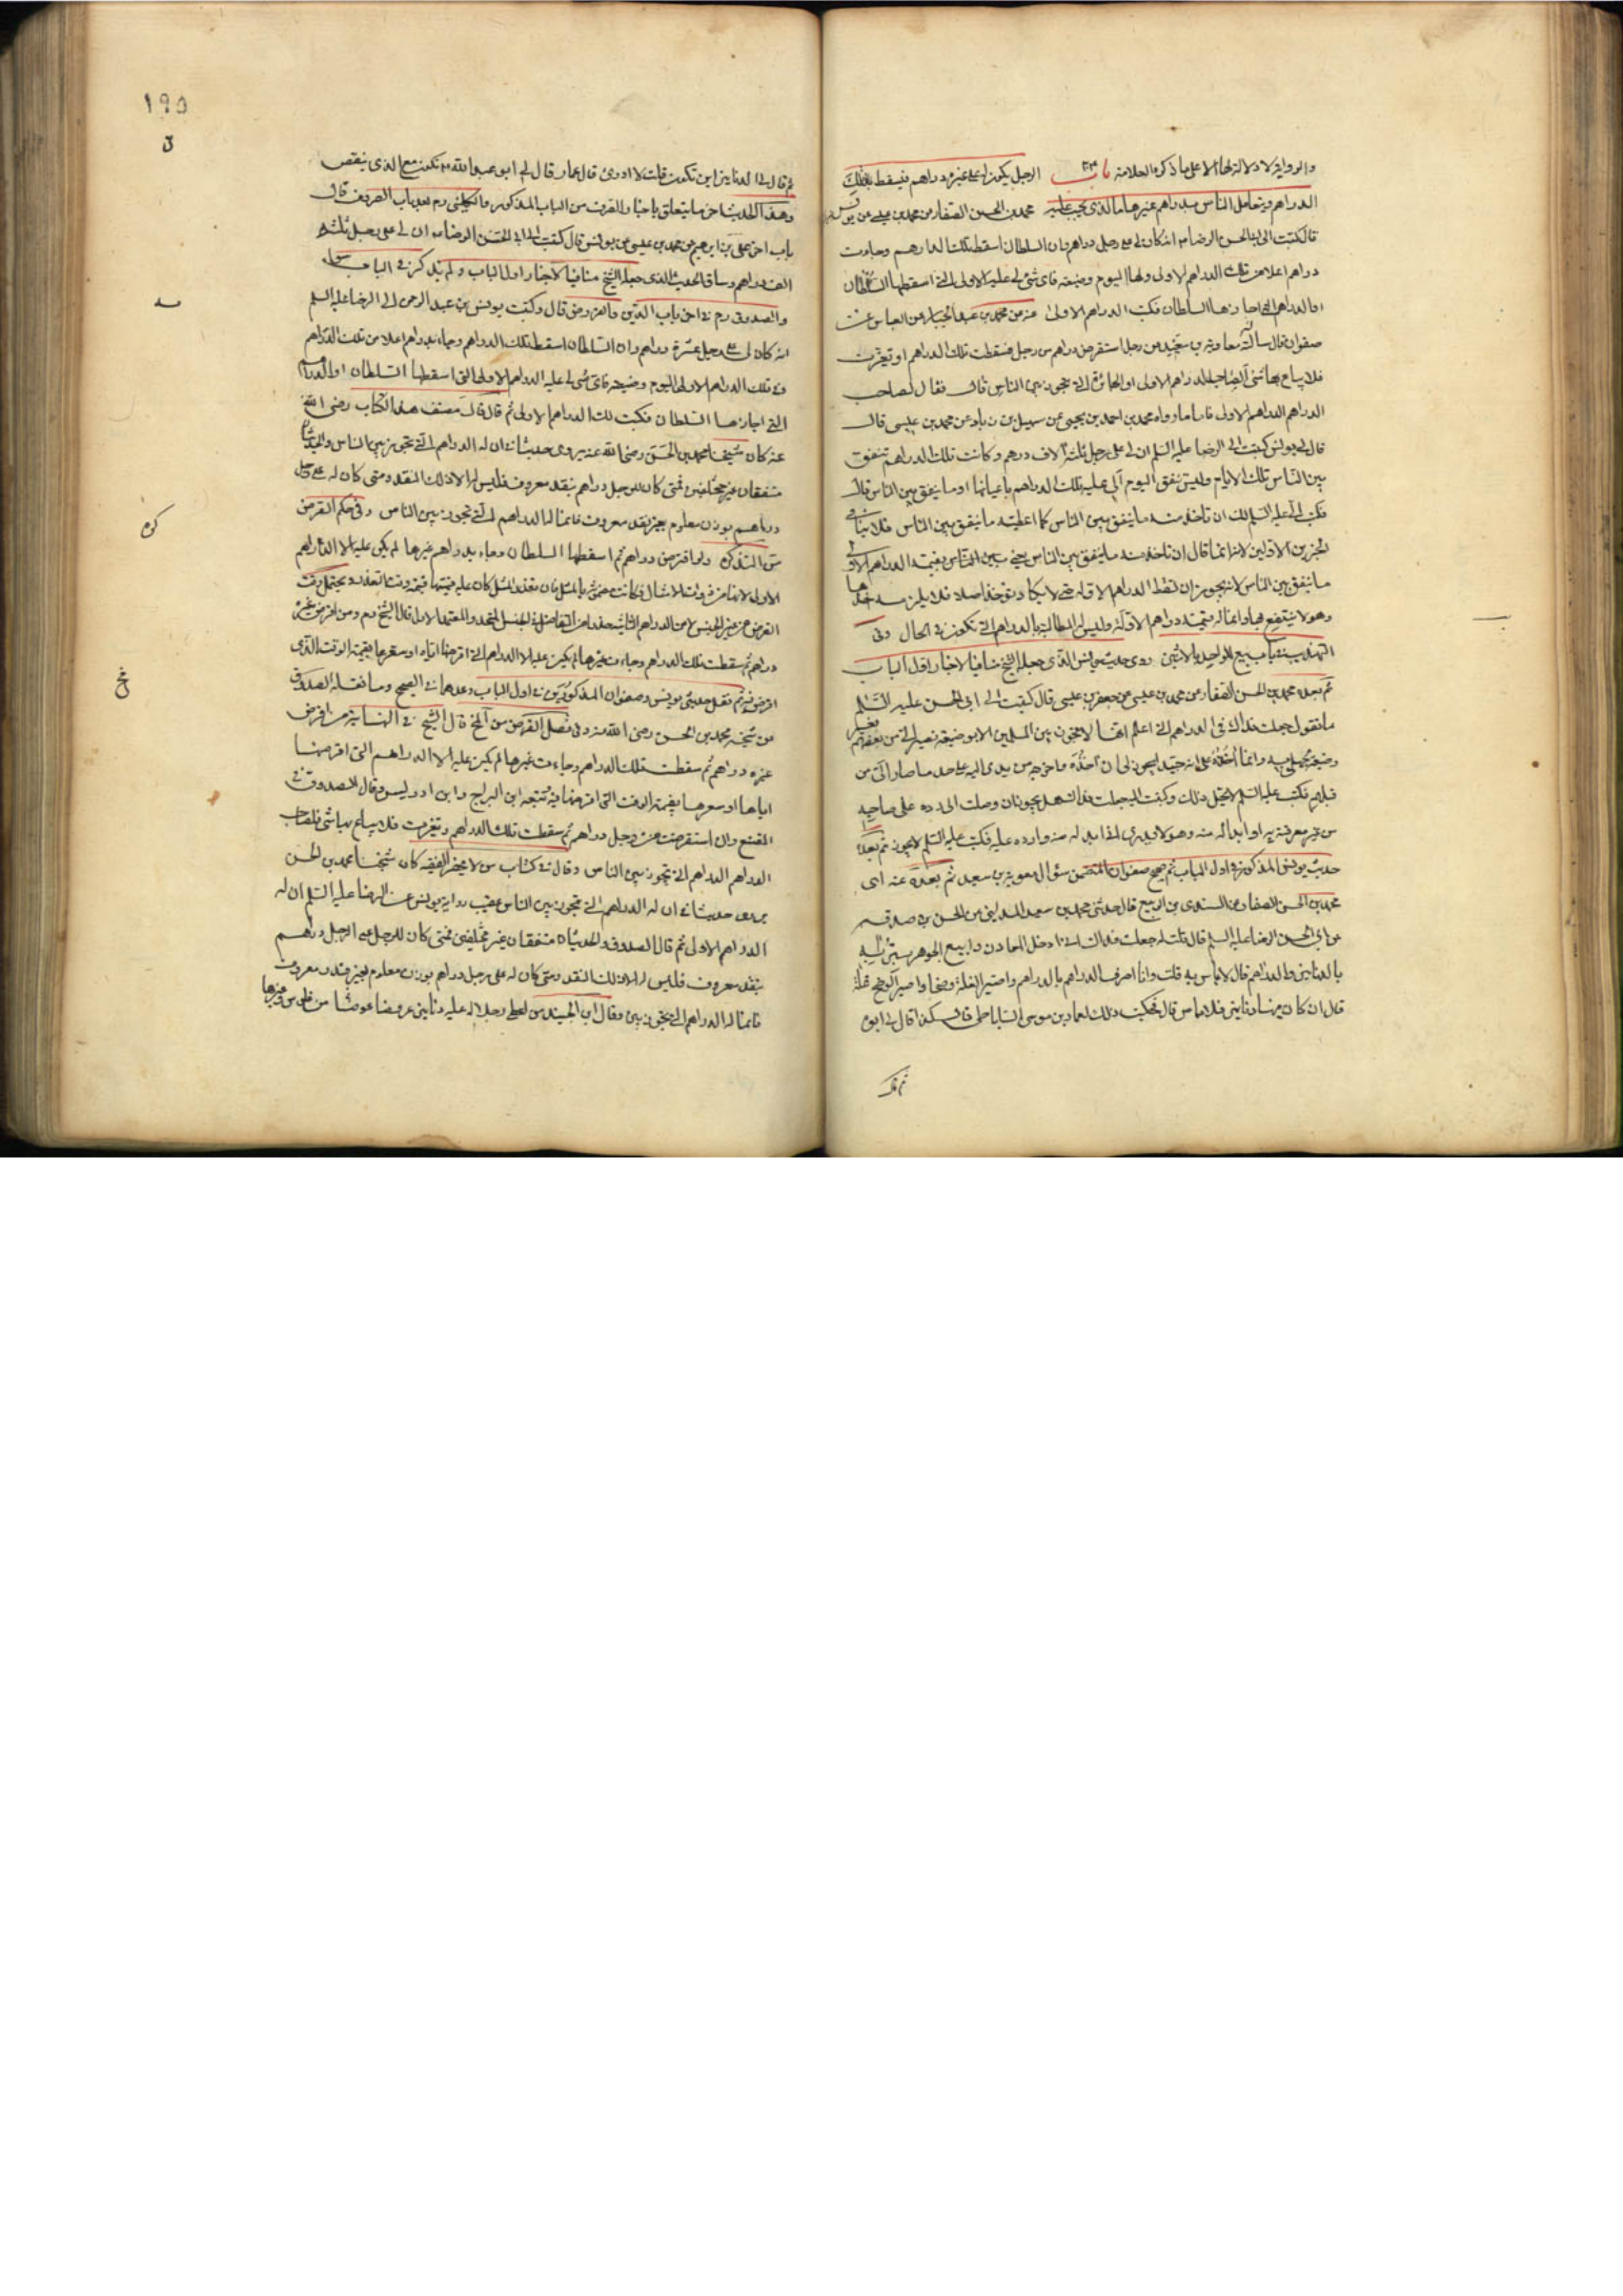 والرواية لا دلالة لها الا على ما ذكره العلامة باب الرجل يكون له على غيره دراهم فيسقط تلك
الدراهم ويتعامل الناس بدراهم غيرها ما الذي يجب عليه محمد بن الحسن الصفار عن محمد بن عيسى عن يونس
قال كتبت الى ابي الحسن الرضا م انه كان لي على رجل دراهم وان السلطان اسقط تلك الدارهم وجاءت
دراهم اعلا من تلك الدراهم الاولى ولها اليوم وضيعة فاى شئ لي عليه الاولى التي اسقطها السلطان
او الدراهم التي اجازها السلطان فكتب الدراهم الاولى عنه عن محمد بن عبد الجبار عن العباس عن
صفوان قال سأله معاوية بن سعيد عن رجل استقرض دراهم من رجل فسقطت تلك الدراهم او تغيرت
فلا يباع بها شئ ألصاحب الدراهم الاولى او الجائزة التي تجوز بين الناس قال فقال لصاحب
الدراهم الدراهم الاولى فاما ما رواه محمد بن احمد بن يحيى عن سهيل بن زياد عن محمد بن عيسى قال
قال لي يونس كتبت الى الرضا عليه السلم ان لي على رجل ثلثة آلاف درهم وكانت تلك الدراهم تنفق
بين الناس تلك الايام وليس تنفق اليوم ألي عليه تلك الدراهم باعيانها او ما ينفق بين الناس قال
فكتب الي عليه السلم لك ان تأخذ منه ما ينفق بين الناس كما اعطيته ما ينفق بين الناس فلا ينافي
الخبرين الاولين لانه انما قال ان تاخذ منه ما ينفق بين الناس يعني بقيمة الدراهم الاولى
ما ينفق بين الناس لانه يجوز ان تسقط الدراهم الاولة حتى لا يكاد تؤخذ اصلا فلا يلزمه اخذها
وهو لا ينتفع بها وانما له قيمة دراهم الاولة وليس له المطالبة بالدراهم التي تكون في الحال وفى
التهذيب في باب بيع الواحد بالاثنين روى حديث يونس الذي جعله الشيخ منافيا لاخبار اول الباب
ثم بعده محمد بن الحسن الصفار عن محمد بن عيسى عن جعفر بن عيسى قال كتبت الى ابي الحسن عليه السلم
ما تقول جعلت فداك في الدراهم التي اعلم انها لا تجوز بين المسلمين الا بوضيعة تصير الي من بعضهم بغير
قبلهم فكتب عليه السلم لا يحل ذلك وكتبت اليه جعلت فداك هل يجوز ان وصلت الى رده على صاحبه
من غير معرفته به او ابداله منه وهو لا يدرى انى ابدله منه وارده عليه فكتب عليه السلم لا يجوز ثم بعده
حديث يونس المذكور في اول الباب ثم صحيح صفوان المتضمن سؤال معوية بن سعيد ثم بعده عنه اى
محمد بن الحسن الصفار عن السندى بن الربيع قال حدثني محمد بن سعيد المدايني عن الحسن بن صدقه
عن ابي الحسن الرضا عليه السلم قال قلت له جعلت فداك اني ادخل المعادن وابيع الجوهر بترابه
بالدنانير والدراهم قال لا باس به قلت وانا اصرف الدراهم بالدراهم واصير الغلة وضحا واصير الوضح غلة
قال ان كان فيها دنانير فلا باس قال فحكيت ذلك لعمار بن موسى الساباطى فقال كذا قال لي ابوه
ثم قال
195
ثم قال لي الدنانير اين تكون قلت لا ادرى قال عمار قال لي ابو عبد الله م تكون مع الذي ينقص
وهذا الحديث اخر ما يتعلق باخبار الصرف من الباب المذكور والكليني رم بعد باب الصروف قال
باب اخر على بن ابراهيم عن محمد بن عيسى عن يونس قال كتبت الى ابى الحسن الرضا م ان لي على رجل ثلثة
الف دراهم وساق الحديث الذي جعله الشيخ منافيا لاخبار اول الباب ولم يذكر في الباب سواه
والصدوق رم في اخر باب الدين والقروض قال وكتب يونس بن عبد الرحمن الى الرضا عليه السلم
انه كان لي على رجل عشرة دراهم وان السلطان اسقط تلك الدراهم وجاءت بدراهم اعلا من تلك الدراهم
وفي تلك الدراهم الاولى اليوم وضيعة فاى شئ لي عليه الدراهم الاولى التي اسقطها السلطان او الدراهم
التي اجازها السلطان فكتب لك الدراهم الاولى ثم قال قال مصنف هذا الكتاب رضى الله
عنه كان شيخنا محمد بن الحسن رضى الله عنه يروى حديثا في ان له الدراهم التي تجوز بين الناس والحديثان
متفقان غير مختلفين فمتى كان للرجل على الرجل دراهم بنقد معروف فليس له الا ذلك النقد ومتى كان له على رجل
دراهم بوزن معلوم بغير نقد معروف فانما له الدراهم التي تجوز بين الناس وفى حكم القرض
من التذكره ولو اقترض دراهم ثم اسقطها السلطان وجاء بدراهم غيرها لم يكن عليه الا الدراهم
الاولى لانها من ذوات الامثال فكانت مضمونة بالمثل فان تعذر المثل كان عليه قيمتها
دراهم ثم سقطت تلك الدراهم وجاءت غيرها لم يكن عليه الا الدراهم التي اقرضها اياه او سعرها بقيمة الوقت الذي
اقرض فيه ثم نقل حديثى يونس وصفوان المذكورين في اول الباب وعدهما في الصحيح وما نقله الصدوق
عن شيخه محمد بن الحسن رضى الله عنه وفى فصل القرض من المخ قال الشيخ في النهاية من اقرض
غيره دراهم ثم سقطت تلك الدراهم وجاءت غيرها لم يكن عليه الا الدراهم التي اقرضها
اياها او سعرها بقيمة الوقت التي اقرضها فيه وتبعه ابن البراج وابن ادريس وقال الصدوق في
المقنع وان استقرضت من رجل دراهم ثم سقطت تلك الدراهم وتغيرت فلا يباع بها شئ فلصاحب
الدراهم الدراهم التي تجوز بين الناس وقال في كتاب من لا يحضره الفقيه كان شيخنا محمد بن الحسن
يروى حديثا في ان له الدراهم التي تجوز بين الناس عقيب رواية يونس عن الرضا عليه السلم ان له
الدراهم الاولى ثم قال الصدوق والحديثان متفقان غير مختلفين فمتى كان للرجل على الرجل دراهم
بنقد معروف فليس له الا ذلك النقد ومتى كان له على رجل دراهم بوزن معلوم بغير نقد معروف
فانما له الدراهم التي تجوز بين وقال ابن الجنيد من اعطى رجلا له عليه دنانير عروضا عوضا من فلوس وغيرها